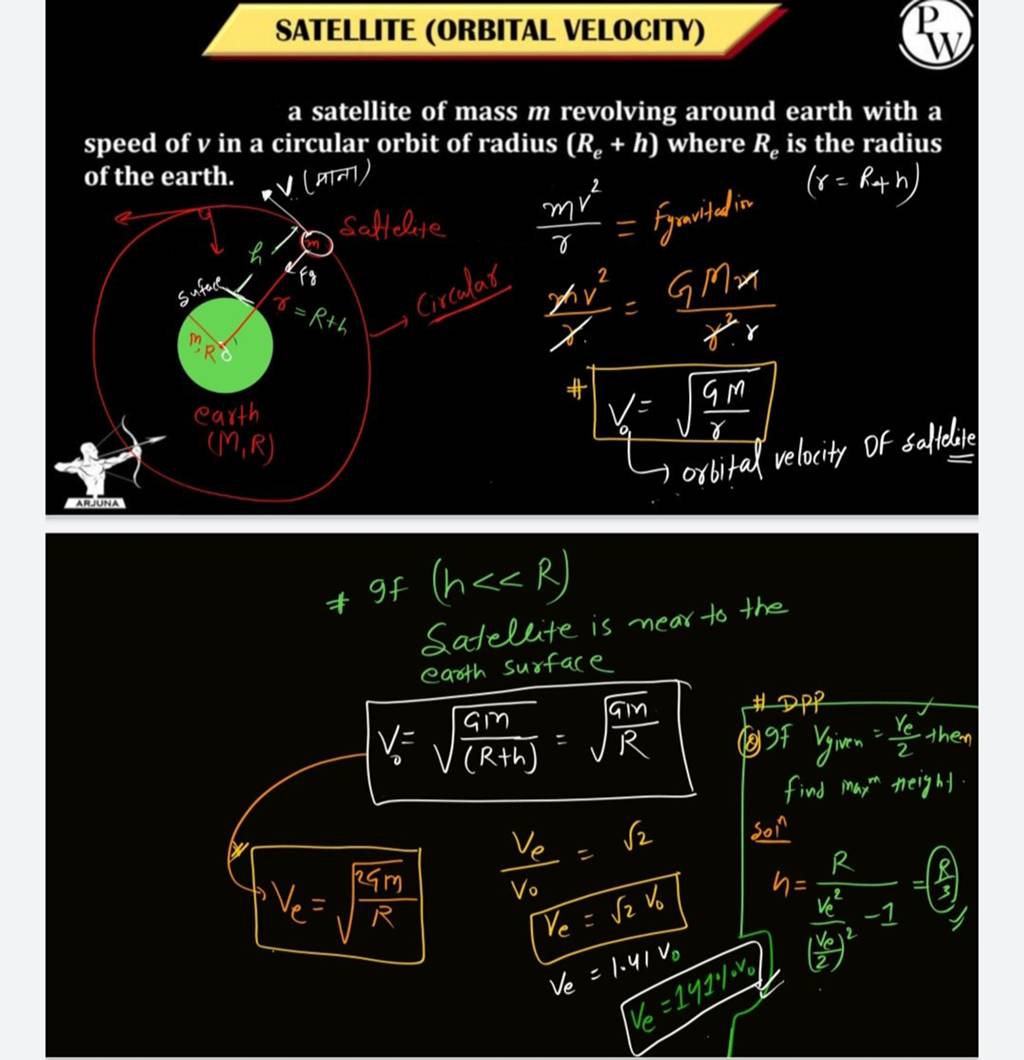 SATELLITE (ORBITAL VELOCITY)
PW
a satellite of mass m revolving around earth with a
speed of v in a circular orbit of radius (Rₑ + h) where Rₑ is the radius
of the earth.
(r = R+h)
V (माना)
Saltelite
m
h
Fg
Suface
r = R+h
→ Circular
m, R
earth
(M,R)
ARJUNA
mv²/r = Fgravitation
mv²/r = GMm/r² r
# V₀ = √(GM/r)
↳ orbital velocity OF saltelite
# If (h << R)
Satellite is near to the
earth surface
V₀ = √(Gm/(R+h)) = √(Gm/R)
Ve = √(2Gm/R)
Ve/V₀ = √2
Ve = √2 V₀
Ve = 1.41 V₀
Ve = 141% V₀
# DPP
If Vgiven = Ve/2 then
find maxᵐ height.
Solⁿ
h = R/(Ve²/(Ve/2)² - 1) = R/3